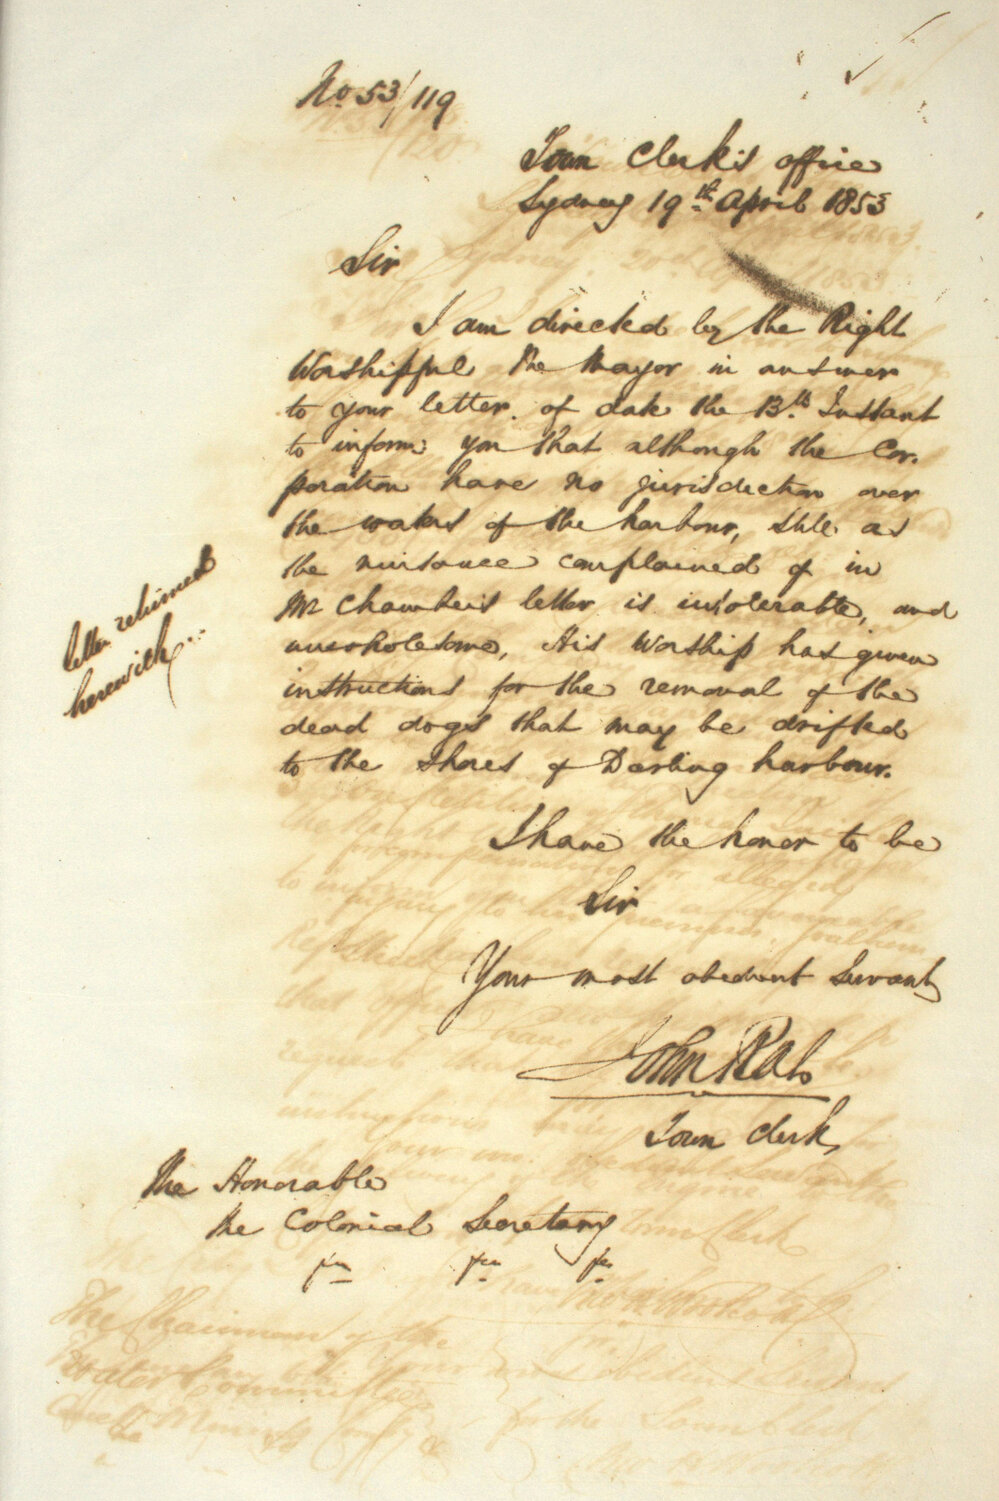 No 53/119
Town Clerk's office
Sydney 19th April 1853
Sir
I am directed by the Right
Worshipful the Mayor in answer
to your letter of date the 13th Instant
to inform you that although the Cor-
poration have no jurisdiction over
the waters of the harbour, still as
the nuisance complained of in
Mr Chamber's letter is intolerable, and
unwholesome, His Worship has given
instructions for the removal of the
dead dogs that may be drifted
to the Shores of Darling harbour.
letter returned
herewith
I have the honor to be
Sir
Your most obedient Servant
John Rae
Town Clerk
The Honorable
the Colonial Secretary